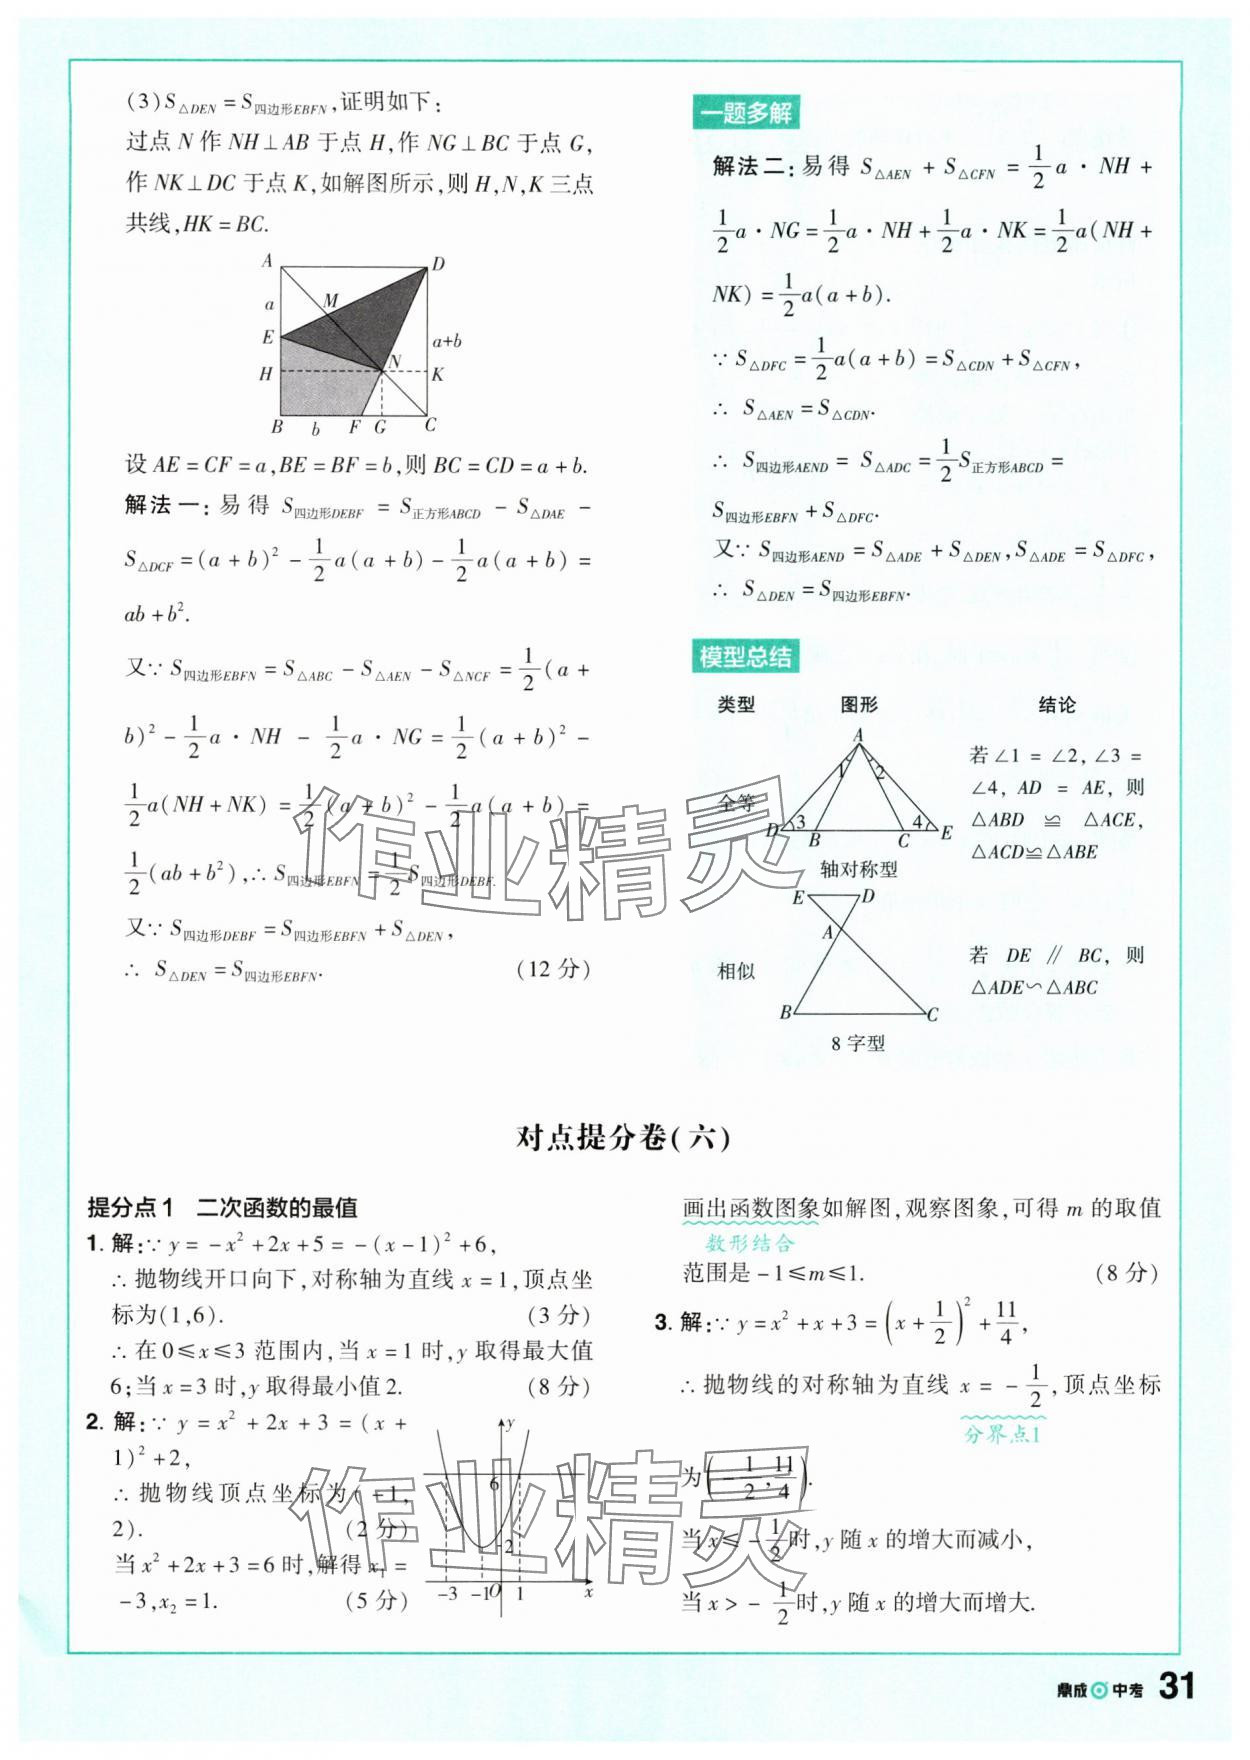 (3)S△DEN=S四边形EBFN,证明如下:
过点 N 作 NH⊥AB 于点 H,作 NG⊥BC 于点 G,
作 NK⊥DC 于点 K,如解图所示,则 H,N,K 三点
共线,HK=BC.
A D
a M
E a+b
N
H K
B b F G C
设 AE=CF=a,BE=BF=b,则 BC=CD=a+b.
解法一:易得 S四边形DEBF = S正方形ABCD - S△DAE -
S△DCF=(a+b)²-1/2a(a+b)-1/2a(a+b)=
ab+b².
又∵S四边形EBFN=S△ABC-S△AEN-S△NCF=1/2(a+
b)²-1/2a·NH-1/2a·NG=1/2(a+b)²-
1/2a(NH+NK)=1/2(a+b)²-1/2a(a+b)=
1/2(ab+b²),∴S四边形EBFN=1/2S四边形DEBF.
又∵S四边形DEBF=S四边形EBFN+S△DEN,
∴ S△DEN=S四边形EBFN. (12分)
一题多解
解法二:易得 S△AEN+S△CFN=1/2a·NH+
1/2a·NG=1/2a·NH+1/2a·NK=1/2a(NH+
NK)=1/2a(a+b).
∵S△DFC=1/2a(a+b)=S△CDN+S△CFN,
∴ S△AEN=S△CDN.
∴ S四边形AEND=S△ADC=1/2S正方形ABCD=
S四边形EBFN+S△DFC.
又∵S四边形AEND=S△ADE+S△DEN,S△ADE=S△DFC,
∴ S△DEN=S四边形EBFN.
模型总结
类型 图形 结论
全等
A
1 2
D 3 B C 4 E
轴对称型
若∠1=∠2,∠3=
∠4,AD=AE,则
△ABD≌△ACE,
△ACD≌△ABE
相似
E D
A
B C
8字型
若 DE∥BC,则
△ADE∽△ABC
对点提分卷(六)
提分点1 二次函数的最值
1.解:∵y=-x²+2x+5=-(x-1)²+6,
∴抛物线开口向下,对称轴为直线 x=1,顶点坐
标为(1,6). (3分)
∴在0≤x≤3范围内,当x=1时,y取得最大值
6;当x=3时,y取得最小值2. (8分)
2.解:∵y=x²+2x+3=(x+
1)²+2,
∴抛物线顶点坐标为(-1,
2). (2分)
当x²+2x+3=6时,解得x₁=
-3,x₂=1. (5分)
y
6
2
-3 -1 O 1 x
画出函数图象如解图,观察图象,可得m的取值
数形结合
范围是-1≤m≤1. (8分)
3.解:∵y=x²+x+3=(x+1/2)²+11/4,
∴抛物线的对称轴为直线 x=-1/2,顶点坐标
分界点1
为(-1/2,11/4).
当x≤-1/2时,y随x的增大而减小,
当x>-1/2时,y随x的增大而增大.
作业精灵
作业精灵
鼎成中考 31